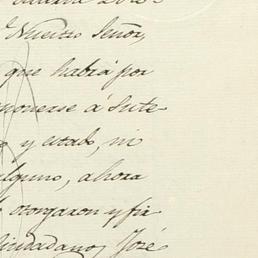 Nuestro Señor,
que habrá por
ponerse á Sute
y estado, ni
alguno, ahora
otorgaron y fir
Ciudadano, José